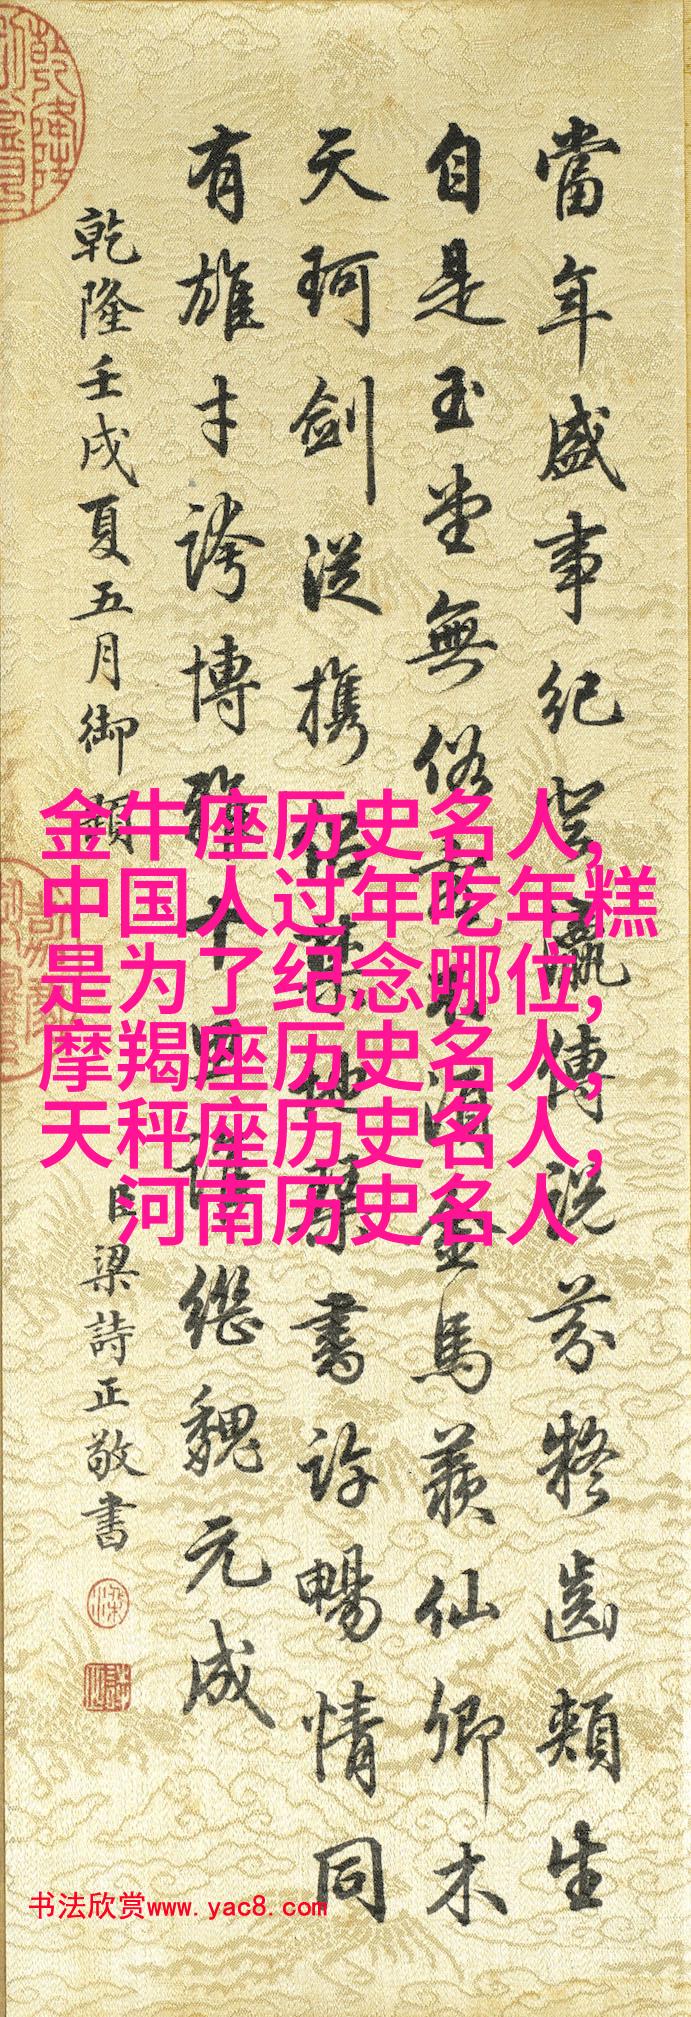 當年盛事紀登瀛傳説芬齒頰生
自是玉堂無俗須金馬羨仙卿木
天珂劍從携侶地琴書許暢情同
有雄才誇博雅十誰繼魏元成
乾隆壬戌夏五月御題
臣梁詩正敬書
乾隆
金牛座历史名人,
中国人过年吃年糕
是为了纪念哪位,
摩羯座历史名人,
天秤座历史名人,
河南历史名人
书法欣赏www.yac8.com